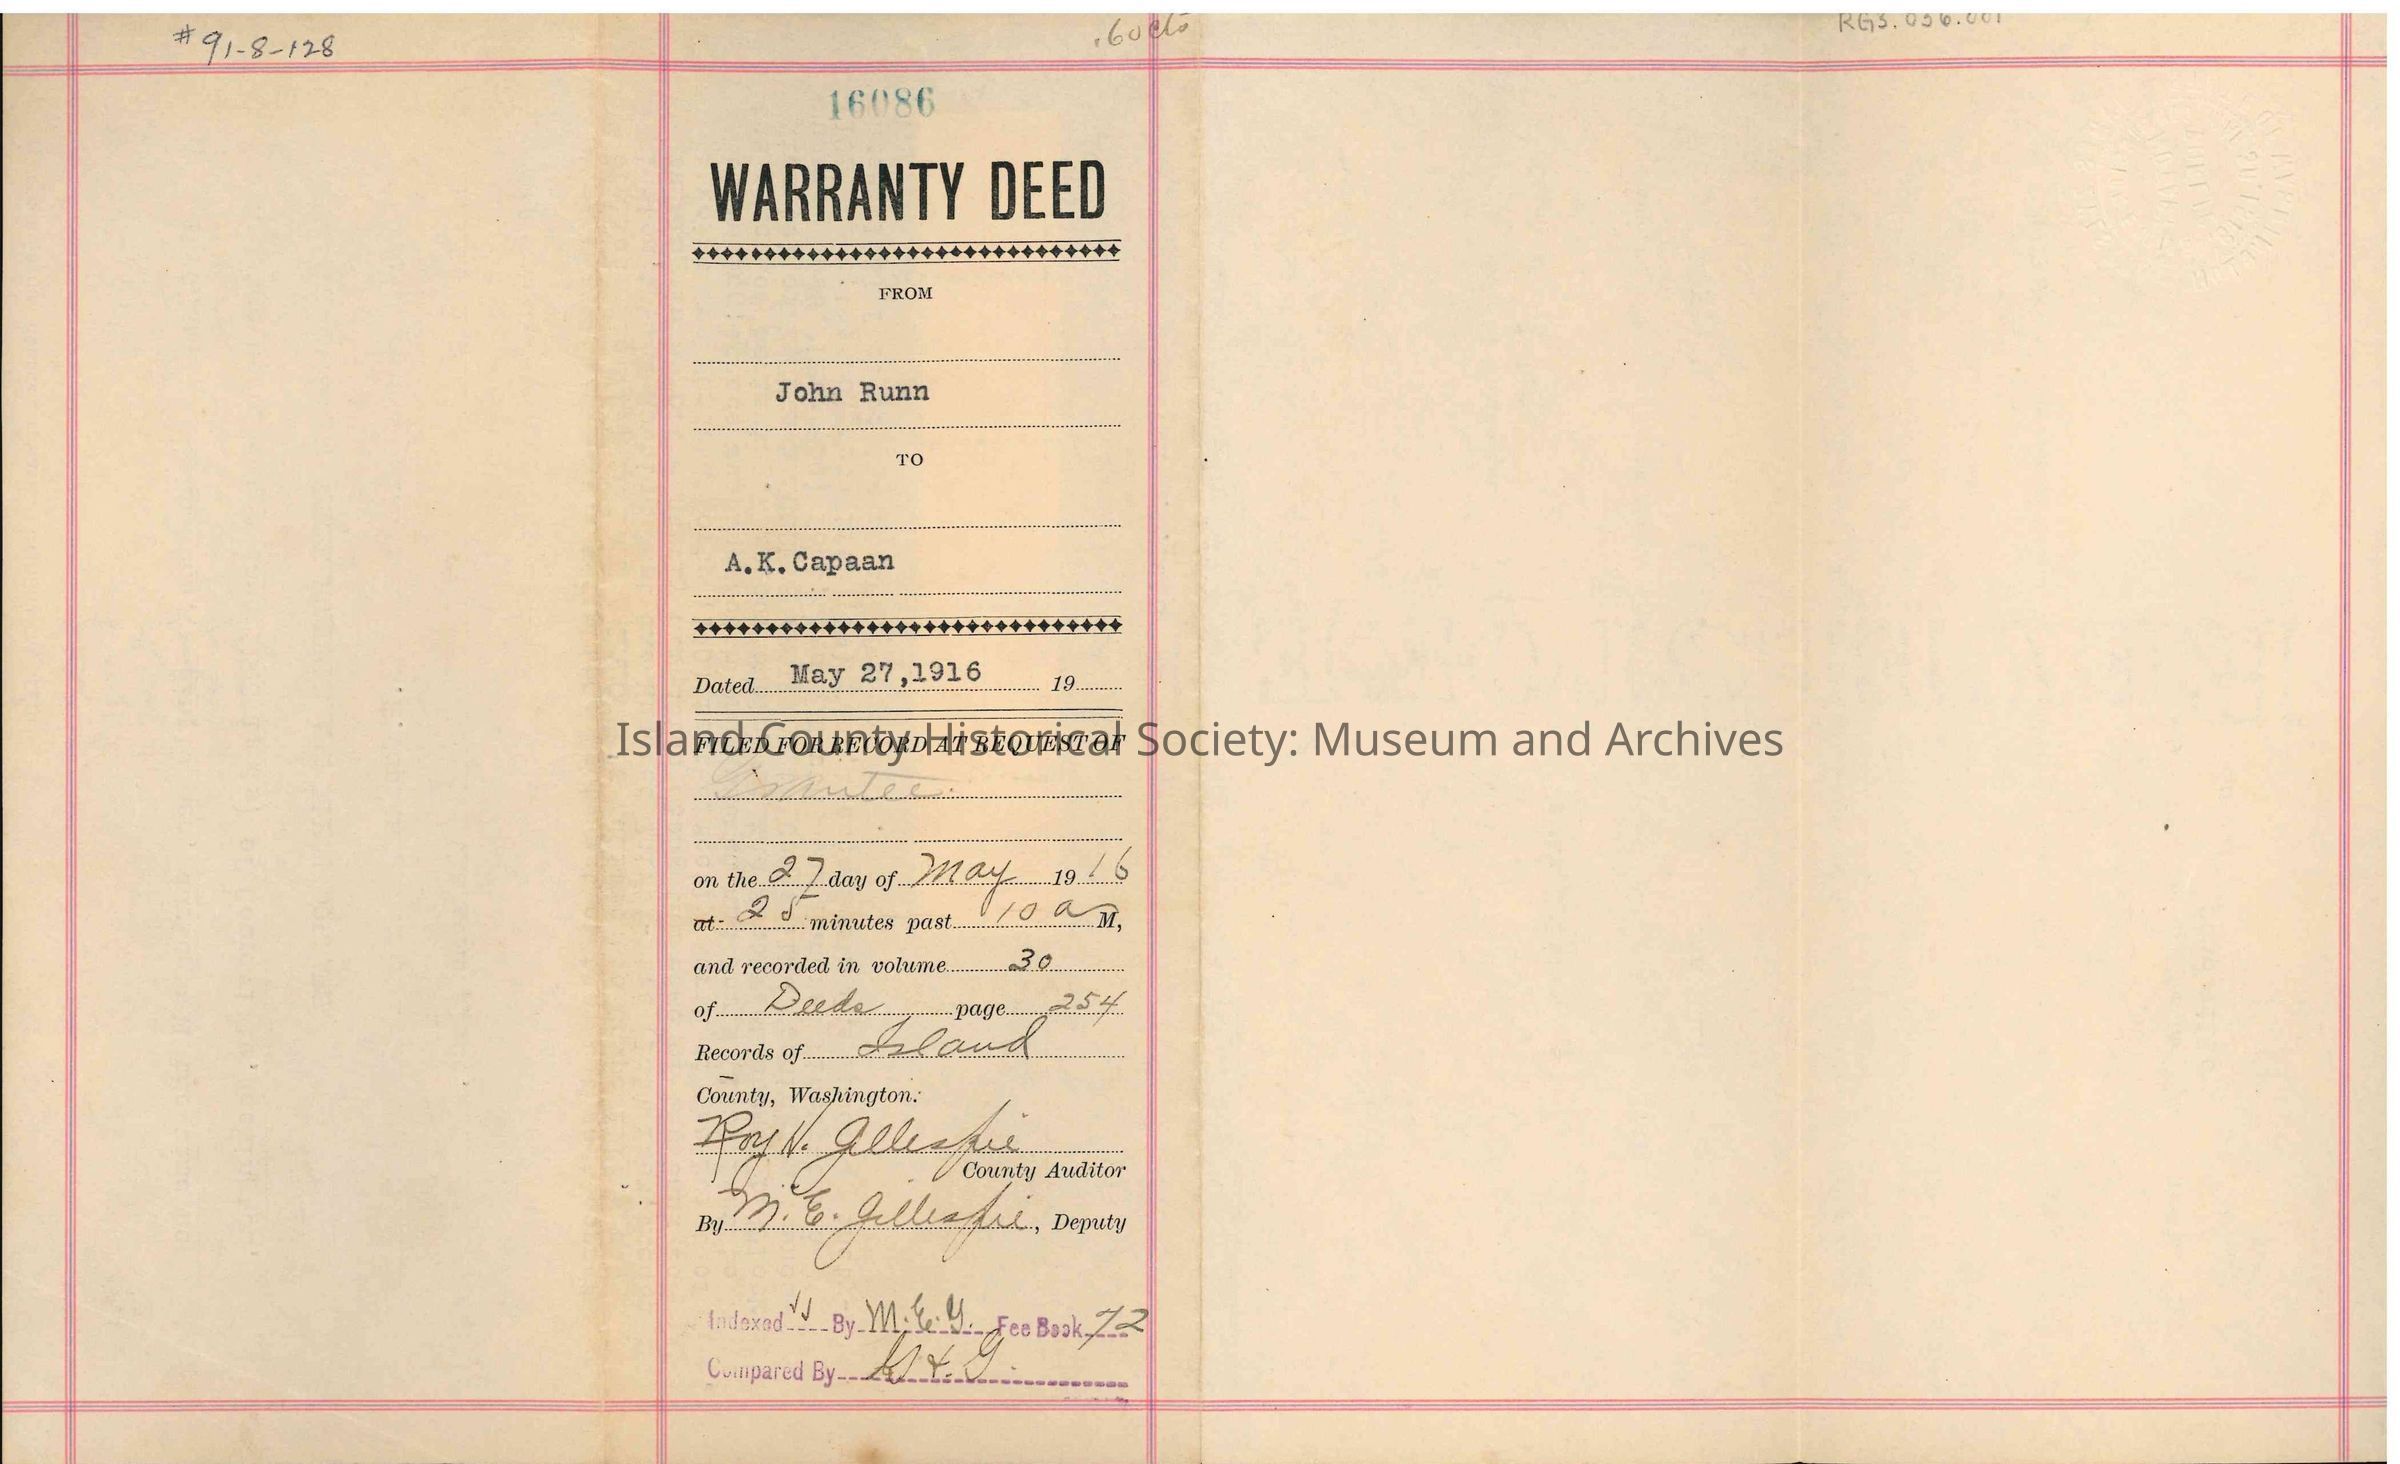 # 91-8-128
.60 cts
RG3.036.001
16086
WARRANTY DEED
FROM
John Runn
TO
A.K.Capaan
Dated May 27,1916 19
Island County Historical Society: Museum and Archives
FILED FOR RECORD AT REQUEST OF
Grantee
on the 27 day of May 1916
at 25 minutes past 10 a M,
and recorded in volume 30
of Deeds page 254
Records of Island
County, Washington.
Roy N. Gillespie
County Auditor
By M. E. Gillespie, Deputy
Indexed By M.E.G. Fee Book 72
Compared By G & G